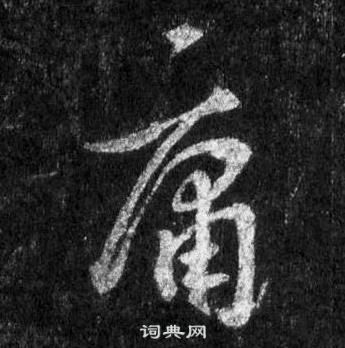 庸
词典网